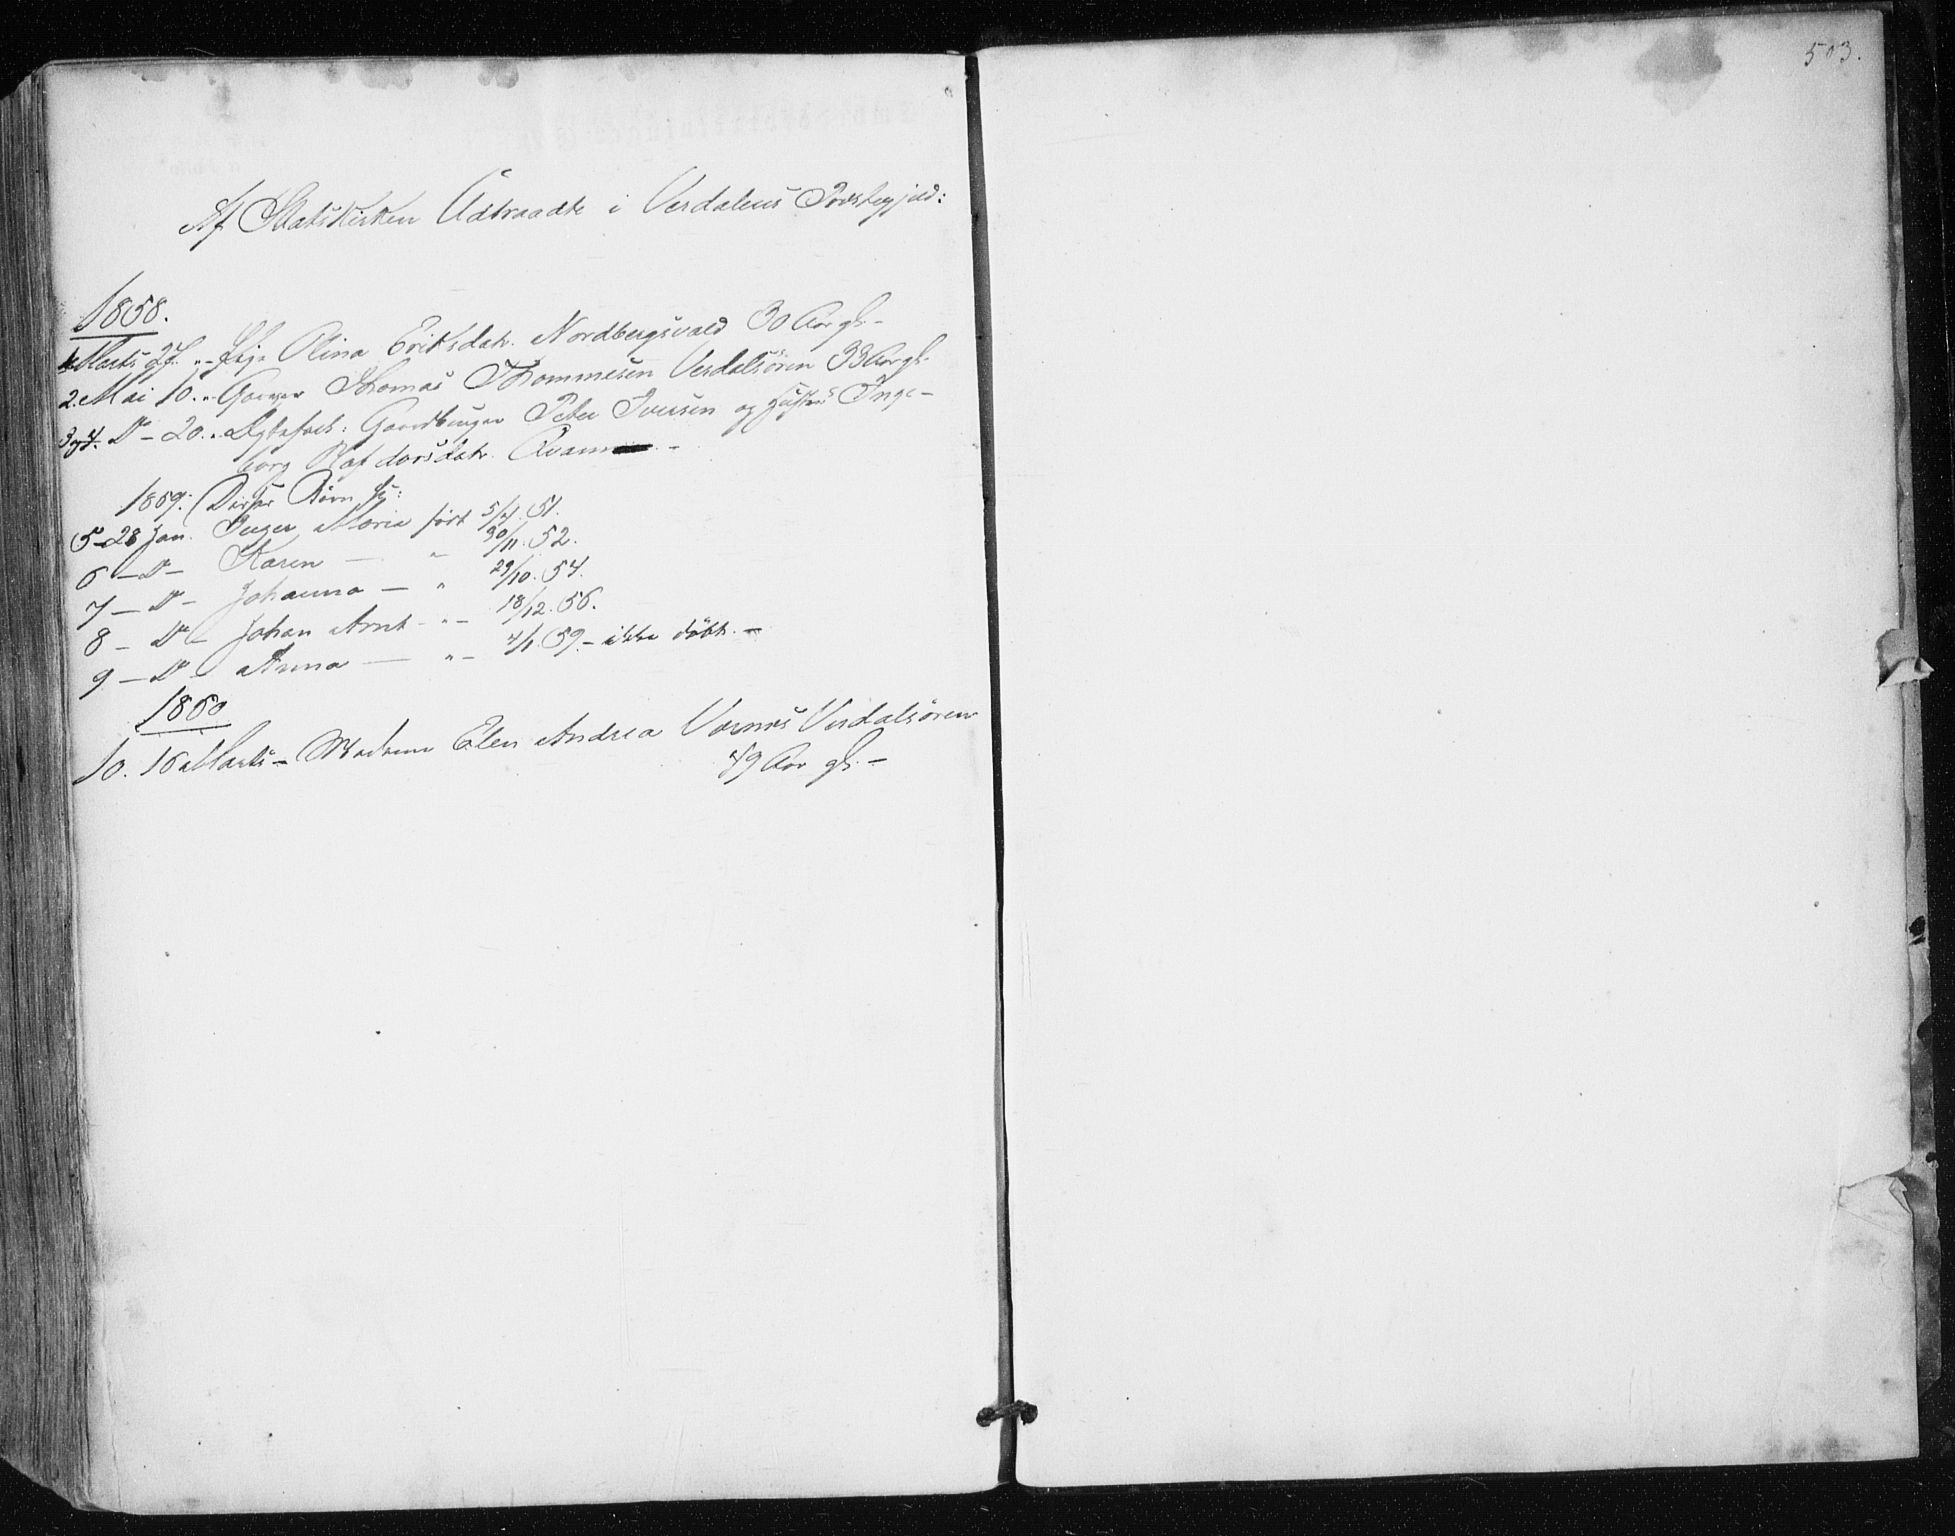 503.
Af Statskirken Udtraadte i Verdalens Præstegjeld:
1858.
1. Marts 27. Pige Olina Eriksdatr. Nordbergsvald 30 Aar gl.
2. Mai 10. Thomas Thommesen Verdalsøren 33 Aar gl.
3 og 4. Do - 20. Ægtefolk: Gaardbruger Peter Iversen og Hustru Inge-
borg Olafdorsdatr. Qvam
1859. (Disses Børn
5 - 28 Jan. Inger Maria født 5/4. 51.
6 - Do - Karen — " 30/11. 52.
7 - Do - Johanna — " 29/10. 54.
8 - Do - Johan Arnt - " - 18/12. 56.
9 - Do - Anna — " - 4/1 59. - ikke døbt. -
1860
10. 16 Marts - Madame Elen Andrea Værnes Verdalsøren
49 Aar gl. -